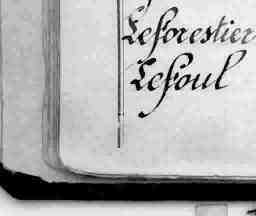 Leforestier
Lefoul